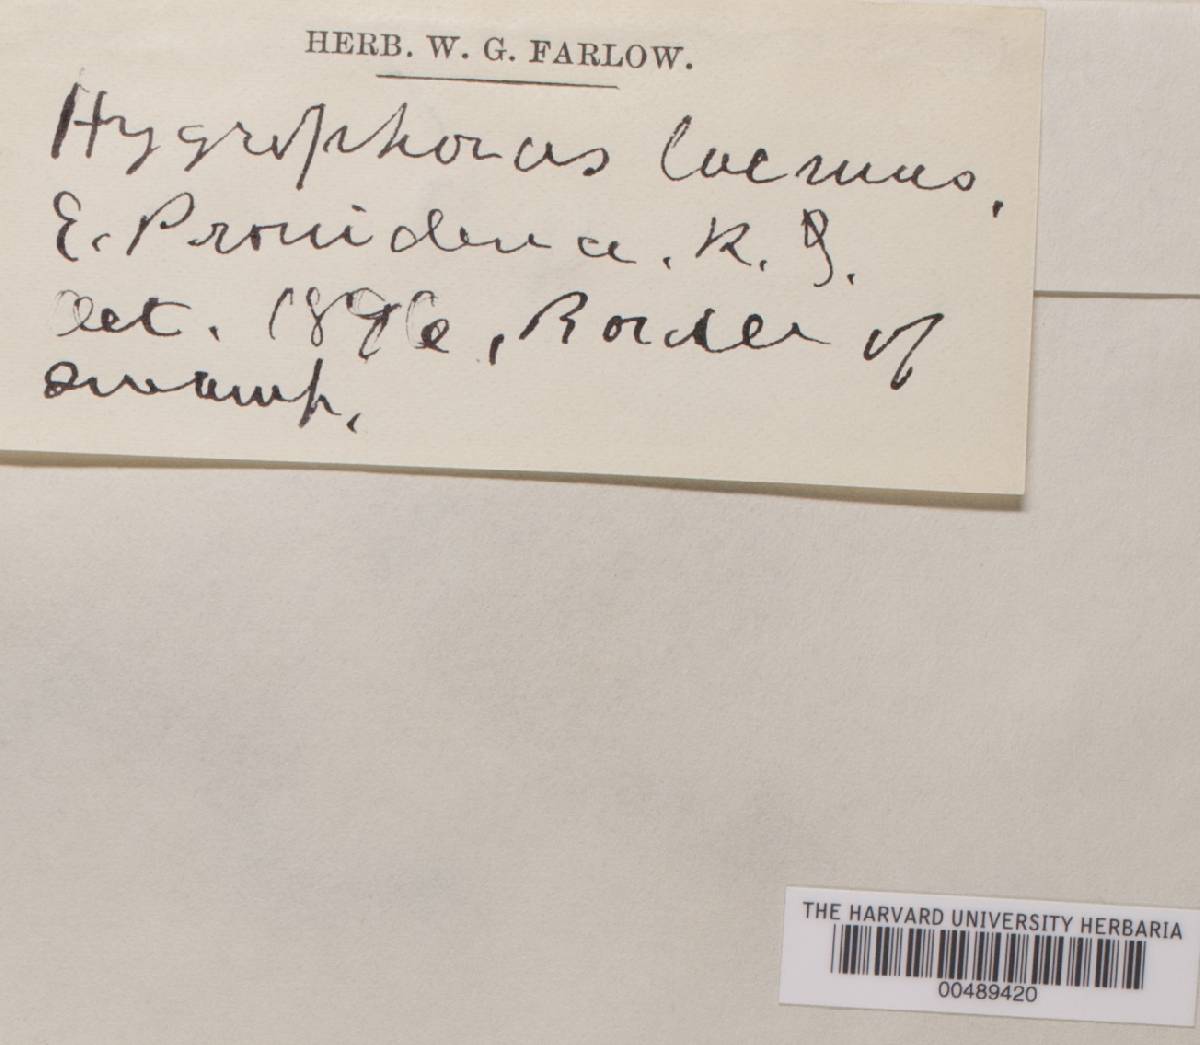 HERB. W. G. FARLOW.
Hygrophorus lacmus,
E. Providence. R. I.
Oct. 1896, Border of
swamp.
THE HARVARD UNIVERSITY HERBARIA
00489420